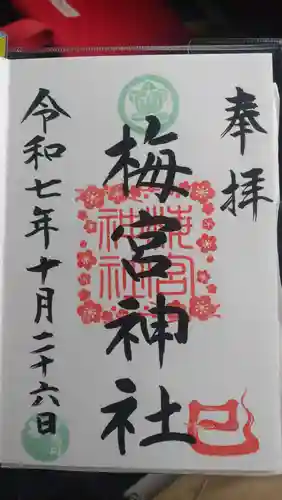 奉拝
梅宮神社
令和七年十月二十六日
梅宮
神社
巳